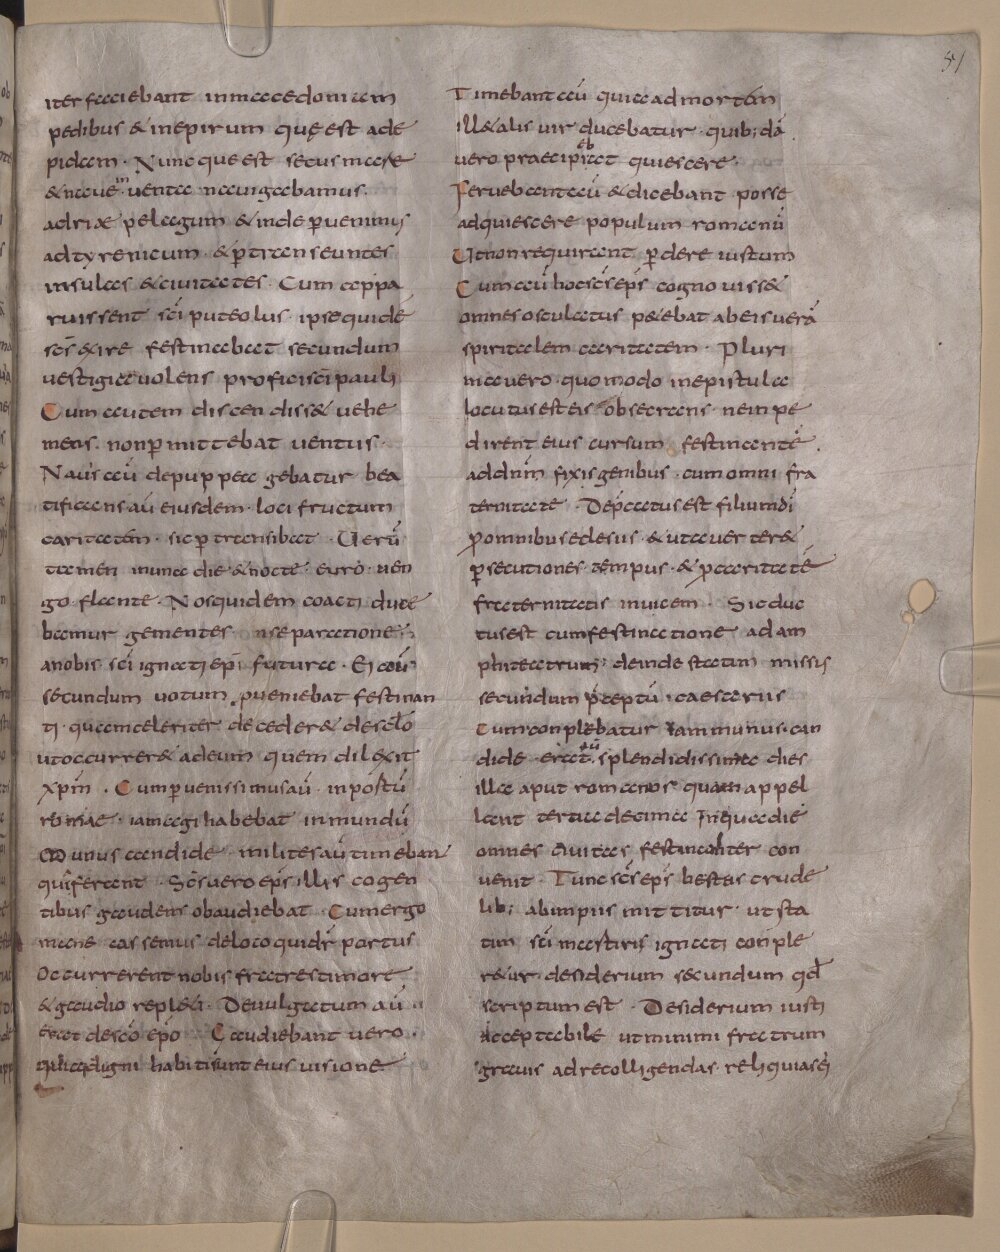 51
iter faciebant in macedoniam
pedibus & in epirum quę est ade
pidam · Nunc que est secus mare
& naue in uenta nauigabamus ·
adriae pelagum & inde puenimus
ad tyrenicum · & p transeuntes
insulas & ciuitates · Cum appa
ruissent sc̄i puteolus · ipse quidē
sc̄s exire festinabat secundum
uestigia uolens proficisci pauli
Cum autem discendiss& uehe
mens · non pmittebat uentus ·
Nauis aū de puppe agebatur bea
tificans aū eiusdem · loci fructum
caritatem · sic p transibat · Uerū
tamen in una die & nocte · euro · uen
to flante · Nos quidem coacti duce
bamur gementes inseparatione
a nobis sc̄i ignatj epī futura · Ei aū
secundum uotum · pueniebat festinan
tj · quam celeriter deceder& de sc̄lo
ut occurrer& ad eum quem dilexit
xp̄m · Cum puenissimus aū · in portū
romae · iam agi habebat inmundū
Munus candide · milites aū timeban
qui ferant · Sc̄s uero ep̄s illis cogen
tibus gaudens obaudiebat · Cum ergo
mane eassemus de loco qui dr̄ portus
occurrerent nobis fratres timore
& gaudio repleti · Deuulgatum aū
erat de sc̄o ep̄o Gaudiebant uero ·
quia digni habiti sunt eius uisione
Timebant aū quia ad mortem
ill& alis uir ducebatur · quib; dā
uero praecipiebat quiescere ·
Feruebant aū & dicebant posse
adquiescere populum romanū
Ut non requirant pdere iustum
Cum aū hoc sc̄s ep̄s cognouiss&
omnes osculatus petebat ab eis uerā
spiritalem caritatem · Pluri
ma uero · quomodo in epistula
locutus est eis obsecrans · ne inpe
dirent eius cursum festinantē ·
ad dn̄m fixis genibus · cum omni fra
ternitate · Dep̄catus est filium dī
p omnibus eclesiis · & ut auerter&
psecutiones tempus · & p caritatē
fraternitatis inuicem · Sic duc
tus est cum festinatione ad am
phiteatrum; deinde statim missis
secundum p̄ceptū · caesariis
tum conplebatur iam munus can
dide · erat aū splendidissimae dies
illa aput romanos quam appel
lant tertia decima in qua die
omnes auitas festinanter con
uenit · Tunc sc̄s ep̄s bestiis crude
lib; ab impiis mittitur · ut sta
tim sc̄i martiris ignati conple
r&ur desiderium secundum qd̄
scriptum est · Desiderium iusti
acceptabile ut minimi fratrum
grauis ad recolligendas reliquias ei